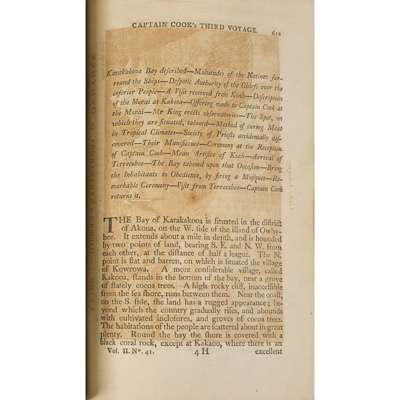 CAPTAIN COOK's THIRD VOYAGE. 611
Karakakooa Bay described—Multitudes of the Natives sur-
round the Ships—Despotic Authority of the Chiefs over the
inferior People—A Visit received from Koah—Description
of the Morai at Kakooa—Offering made to Captain Cook at
the Morai—Mr King erects observatories—The Spot, on
which they are situated, tabooed—Method of curing Meat
in Tropical Climates—Society of Priests accidentally dis-
covered—Their Munificence—Ceremony at the Reception
of Captain Cook—Mean Artifice of Koah—Arrival of
Terreeoboo—The Bay tabooed upon that Occasion—Bring
the Inhabitants to Obedience, by firing a Musquet—Re-
markable Ceremony—Visit from Terreeoboo—Captain Cook
returns it.
THE Bay of Karakakooa is situated in the district
of Akona, on the W. side of the island of Owhy-
hee. It extends about a mile in depth, and is bounded
by two points of land, bearing S. E. and N. W. from
each other, at the distance of half a league. The N.
point is flat and barren, on which is situated the village
of Kowrowa. A more considerable village, called
Kakooa, stands in the bottom of the bay, near a grove
of stately cocoa trees. A high rocky cliff, inaccessible
from the sea shore, runs between them. Near the coast,
on the S. side, the land has a rugged appearance; be-
yond which the country gradually rises, and abounds
with cultivated inclosures, and groves of cocoa trees.
The habitations of the people are scattered about in great
plenty. Round the bay the shore is covered with a
black coral rock, except at Kakooa, where there is an
Vol. II. No. 41. 4 H excellent